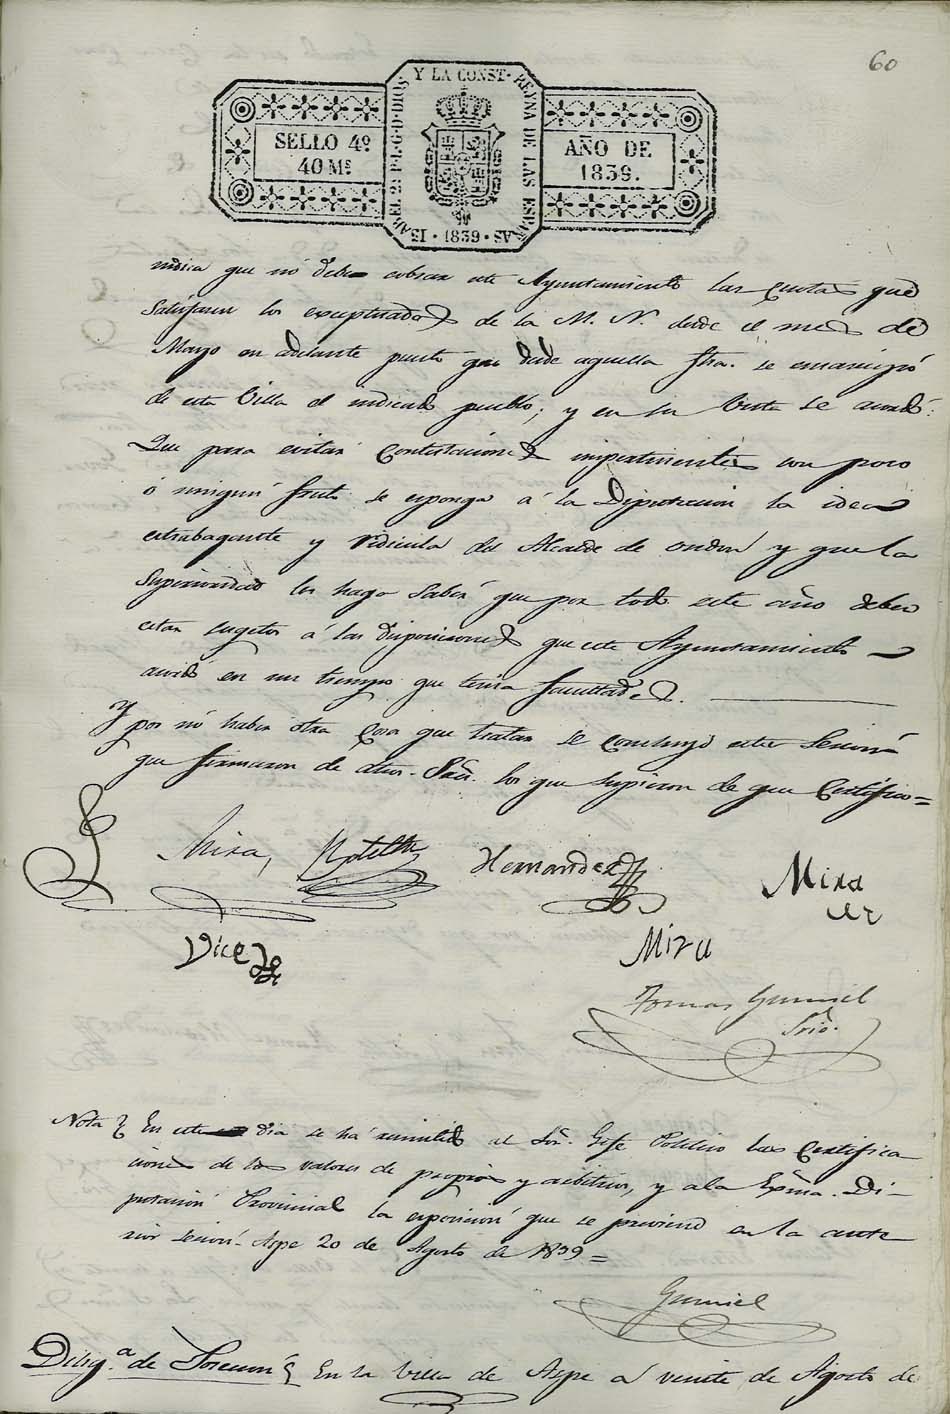 60
Y LA CONST. REYNA DE LAS ESPAÑAS · 1839 · ISABEL 2ª P.L.G.D. DIOS
SELLO 4º
40 Ms
AÑO DE
1839.
indica que nó debe cobrar este Ayuntamiento las Cuotas que
Satisfacen los exceptuados de la M. N. desde el mes de
Marzo en adelante puesto que desde aquella fha. se emancipó
de esta Villa el indicado pueblo; y en su Vista se acordó:
Que para evitar Contestaciones impertinentes con poco
ó ningun fruto se esponga á la Diputacion la idea
estrabagante y ridicula del Alcalde de ondon y que la
Superioridad les haga Saber que por todo este año deben
estar sugetos á las disposiciones que este Ayuntamiento
acordó en un tiempo que tenia facultades.
Y por nó haber otra Cosa que tratar se concluyó esta Sesion
que firmaron de dhos. Sres. los que supieron de que Certifico=
Mira, Botella Hernandez Mira
Vice Mira
Tomas Gumiel
Srio.
Nota En este dia se há remitido al Sor. Gefe Politico las Certifica
ciones de los valores de propios y arbitrios, y a la Exma. Di-
putacion Provincial la esposicion que se previene en la ante
rior sesion. Aspe 20 de Agosto de 1839=
Gumiel
Diligª. de Sorteo En la Villa de Aspe a veinte de Agosto de